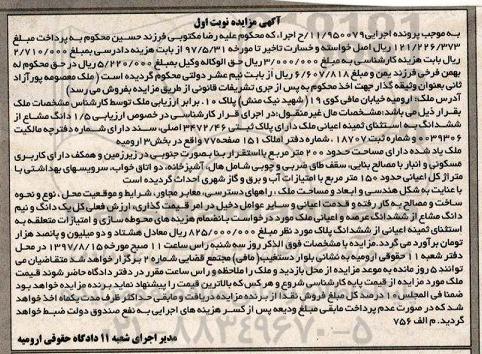 آگهی مزایده نوبت اول
به موجب پرونده اجرایی ۱۱/۹۵۰۰۷۹/ح اجرا، که محکوم علیه رضا مکتوبی فرزند حسین محکوم به پرداخت مبلغ
۱۲۱/۲۲۶/۳۷۳ ریال اصل خواسته و خسارت تاخیر تا مورخه ۹۷/۵/۳۱ از بابت هزینه دادرسی بمبلغ ۲/۷۱۰/۰۰۰
ریال بابت هزینه کارشناسی به مبلغ ۳/۰۰۰/۰۰۰ ریال حق الوکاله وکیل بمبلغ ۵/۲۲۰/۰۰۰ ریال در حق محکوم له
بهمن فرخی فرزند یمن و مبلغ ۶/۶۰۷/۸۱۸ ریال از بابت نیم عشر دولتی محکوم گردیده است (ملک معصومه پورآزاد
ثانی بعنوان وثیقه گذار جهت اخذ محکوم به پس از جری تشریفات قانونی از طریق مزایده بفروش می رسد)
آدرس ملک: ارومیه خیابان مافی کوی ۱۹ (شهید نیک منش) پلاک ۱۰. برابر ارزیابی ملک توسط کارشناس مشخصات ملک
بقرار ذیل می باشد: مشخصات مال غیرمنقول: در اجرای قرار کارشناسی در خصوص ارزیابی ۱/۵ دانگ مشاع از
ششدانگ به استثنای ثمنیه اعیانی ملک دارای پلاک ثبتی ۳۴۷۲/۴۶ اصلی، سند دارای شماره دفترچه مالکیت
۰۰۰۳۹۳۰۶ و شماره ثبت ۱۸۷۰۷، شماره دفتر املاک ۱۵۱ صفحه ۷۷ واقع در بخش ۳ ارومیه
ملک یاد شده دارای مساحت حدود ۲۰۰ متر مربع با استقرار بنا بصورت جنوبی در زیرزمین و همکف دارای کاربری
مسکونی و انبار با مصالح بنایی، سقف طاق ضربی و چوبی شامل هال، آشپزخانه، دو اتاق خواب، سرویسهای بهداشتی با
متراژ کل اعیانی حدود ۱۵۰ متر مربع با امتیازات آب و برق و گاز شهری احداث گردیده است
با عنایت به شکل هندسی و ابعاد و مساحت ملک، راههای دسترسی، معابر مجاور، شرایط و موقعیت محل، نوع و نحوه
ساخت و مصالح به کار رفته و قدمت اعیانی و سایر عوامل دخیل در امر قیمت گذاری، ارزش فعلی کل یک دانگ و نیم
دانگ مشاع از ششدانگ عرصه و اعیانی ملک مورد درخواست با انضمام هزینه های محوطه سازی و امتیازات متعلقه به
استثنای ثمنیه اعیانی از ششدانگ پلاک مورد نظر مبلغ ۸۲۵/۰۰۰/۰۰۰ ریال معادل هشتاد و دو میلیون و پانصد هزار
تومان برآورد می گردد. مزایده با مشخصات فوق الذکر روز سه شنبه راس ساعت ۱۱ صبح مورخه ۱۳۹۷/۸/۱۵ در محل
دفتر شعبه ۱۱ حقوقی ارومیه به نشانی بلوار دستغیب (مافی) مجتمع قضایی شماره ۲ برگزار خواهد شد متقاضیان می
توانند ۵ روز مانده به موعد مزایده از محل بازدید و ملک را ملاحظه و راس ساعت مقرر در دفتر دادگاه حاضر شوند قیمت
ملک مورد مزایده از قیمت پایه کارشناسی شروع و هر کس که بالاترین قیمت را پیشنهاد نماید برنده مزایده خواهد بود
ضمنا فی المجلس ۱۰ درصد کل مبلغ فروش نقدا از برنده مزایده دریافت و مابقی حداکثر ظرف مدت یکماه اخذ خواهد
شد که در صورت عدم پرداخت مابقی مبلغ ودیعه پس از کسر هزینه های اجرایی به نفع صندوق دولت ضبط خواهد
گردید. م الف ۷۵۶
مدیر اجرای شعبه ۱۱ دادگاه حقوقی ارومیه